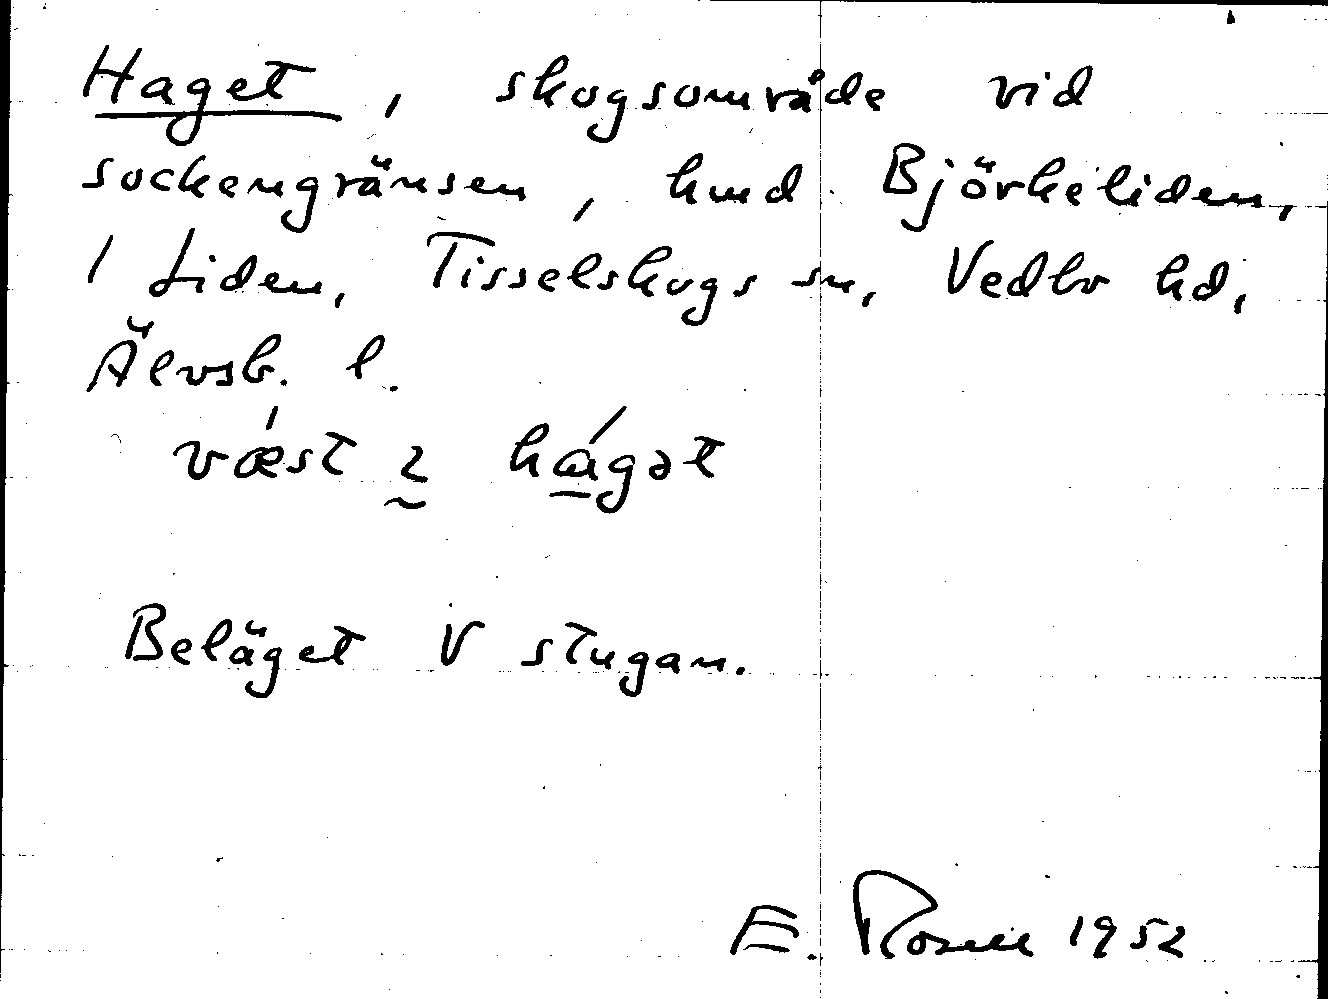 Haget, skogsområde vid
sockengränsen, hmd Björkeliden,
1 Liden, Tisselskogs sn, Vedbo hd,
Älvsb. l.
væ̍st 2 hágət
Beläget V stugan.
E. Rosell 1952